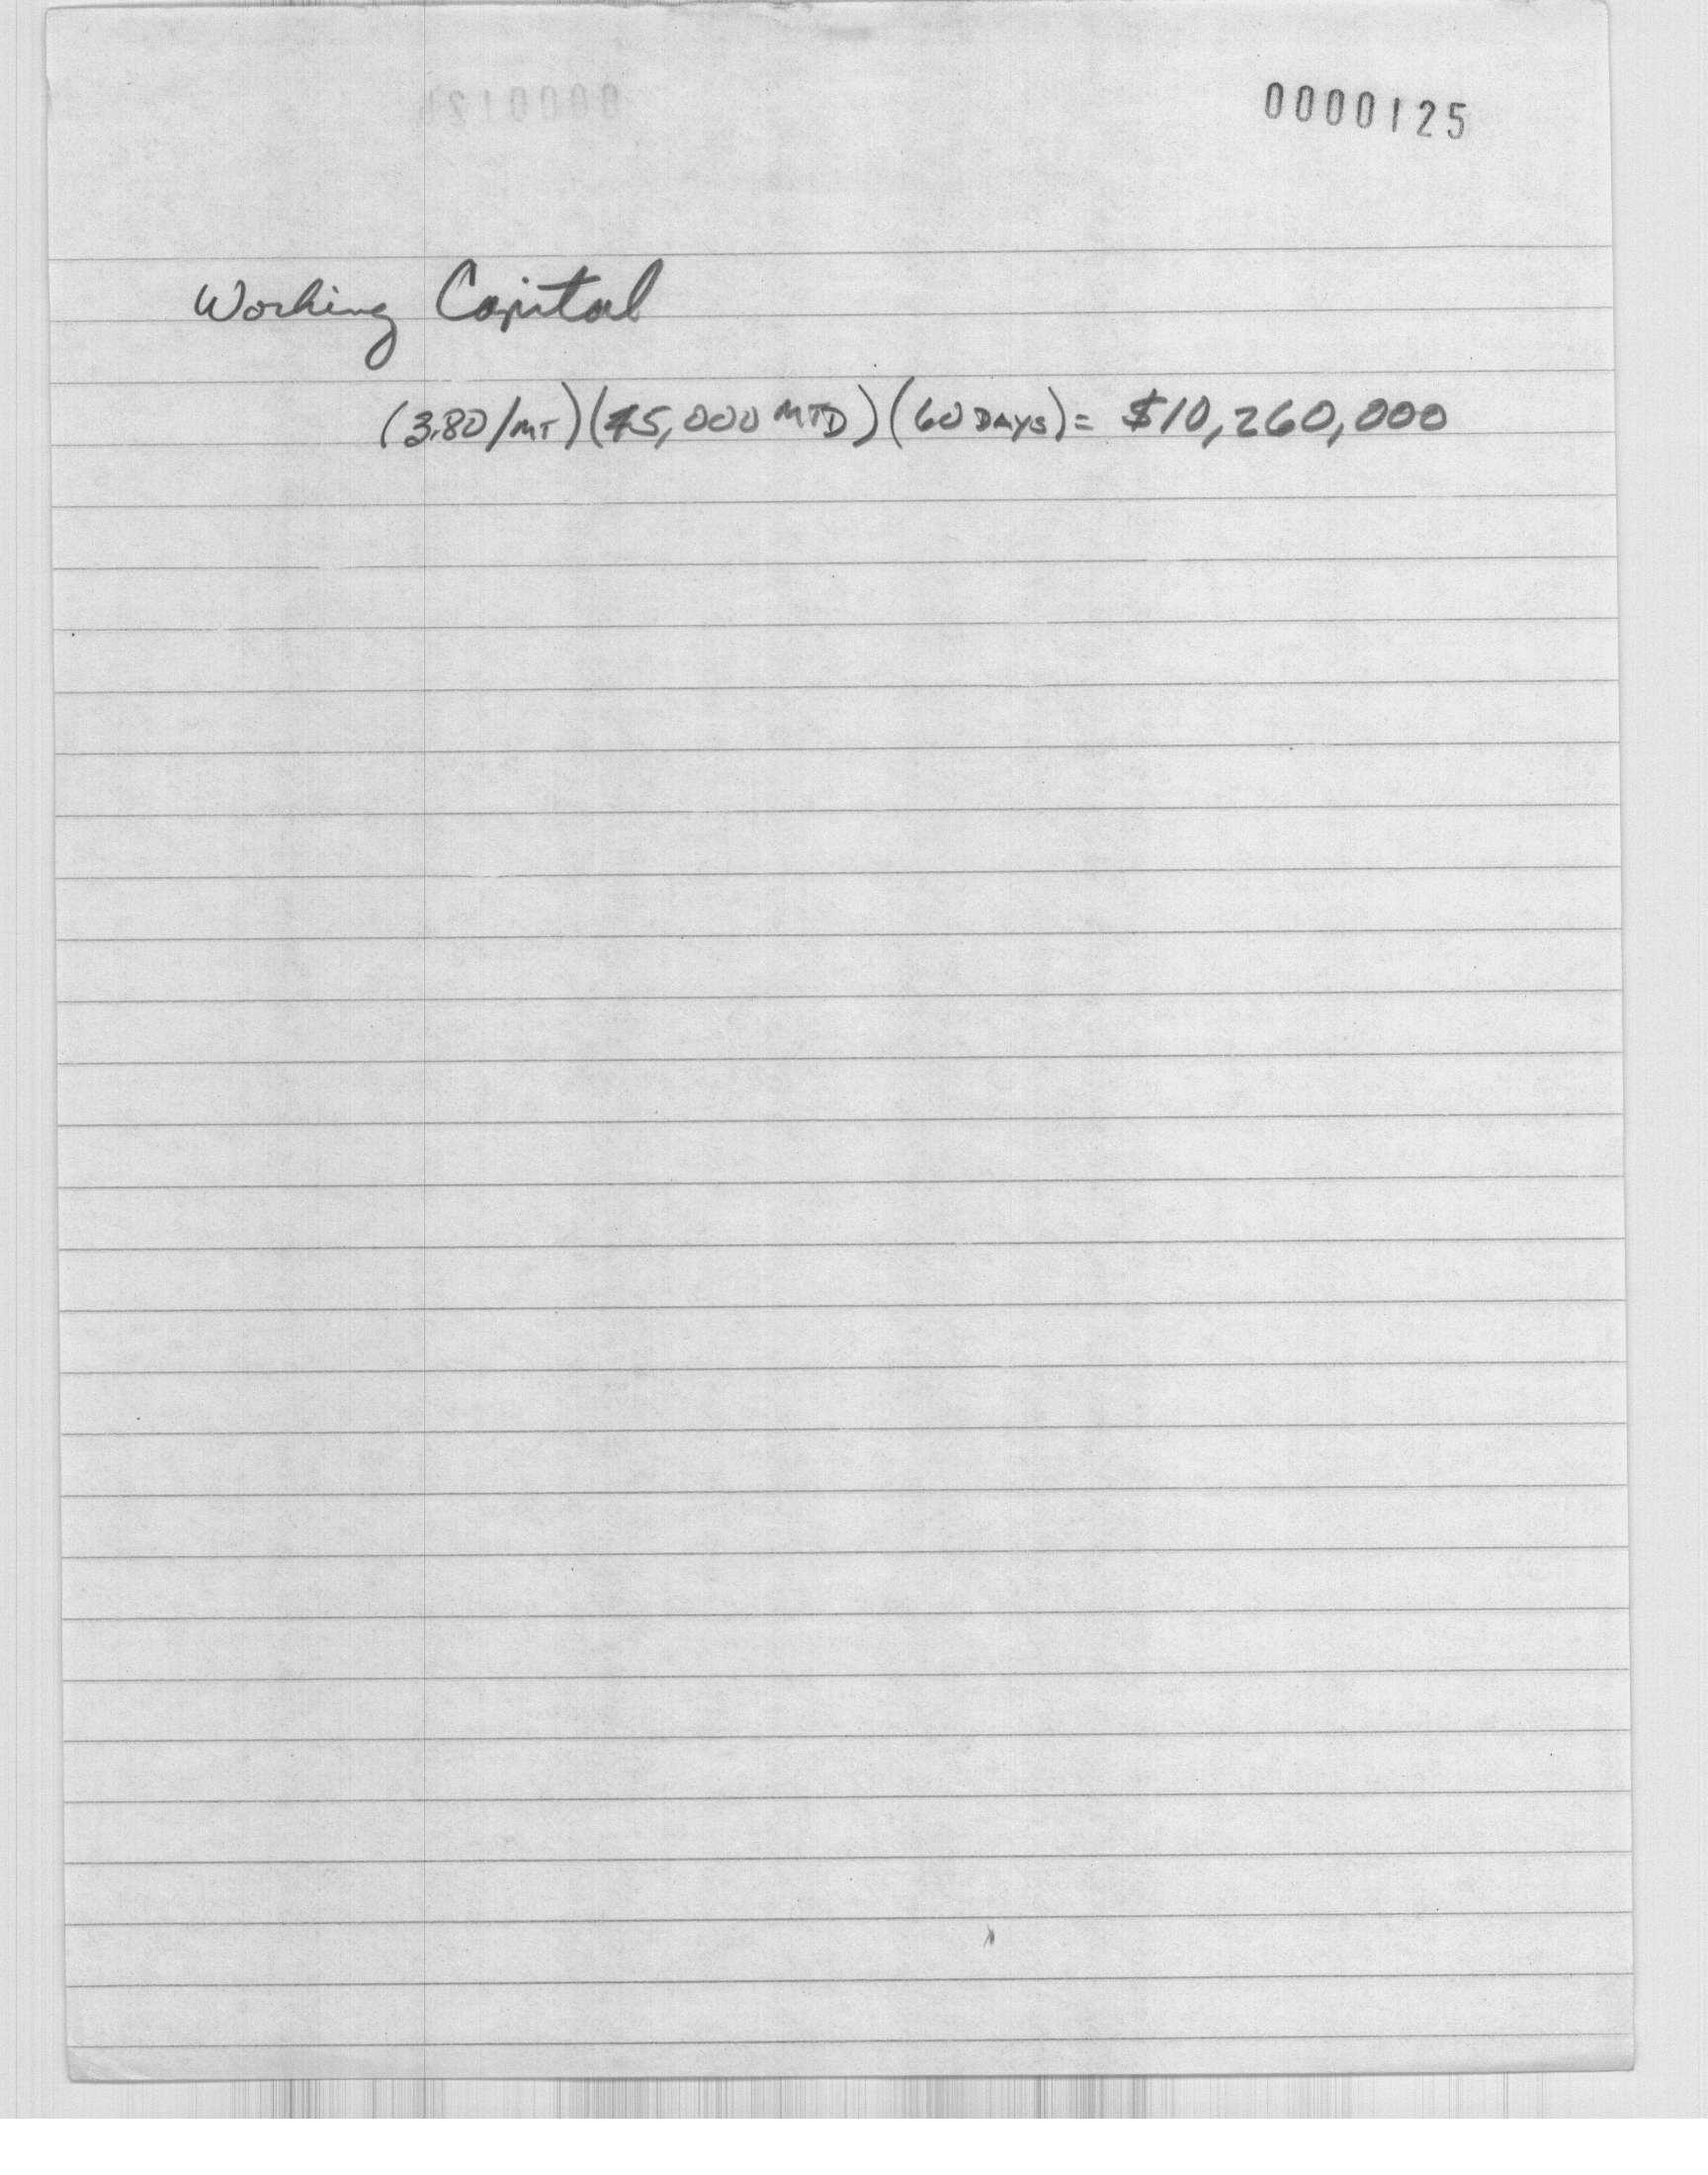 0000125
Working Capital
(3.80/MT)(45,000 MTD)(60 DAYS)= $10,260,000